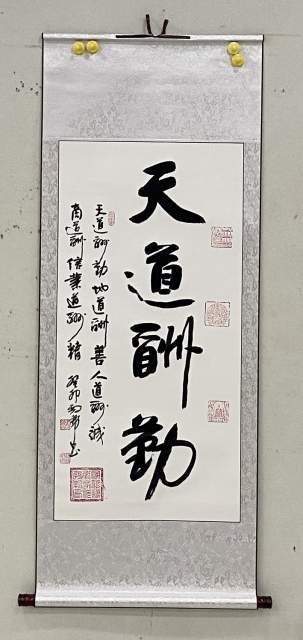 天道酬勤
天道酬勤地道酬善人道酬诚
商道酬信業道酬精 癸卯